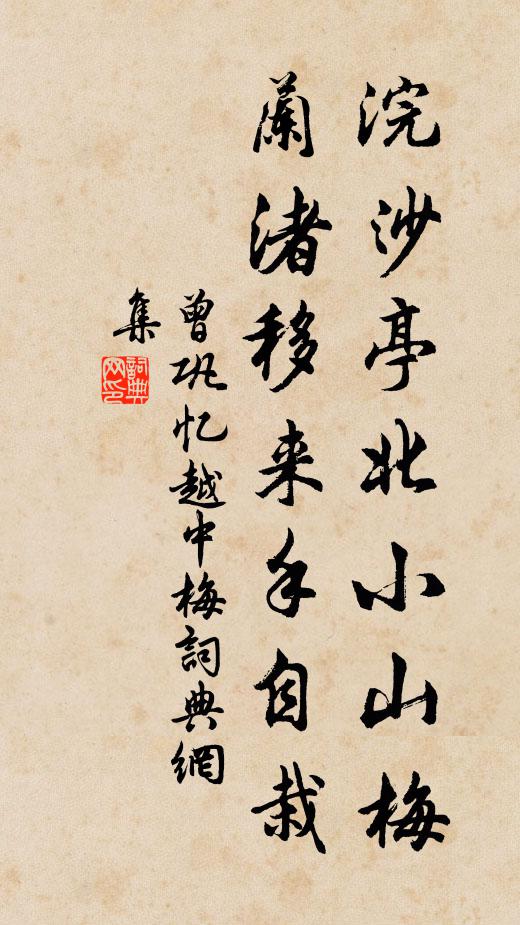 浣沙亭北小山梅
蘭渚移来手自栽
曾巩忆越中梅詞典網
集
詞典网印